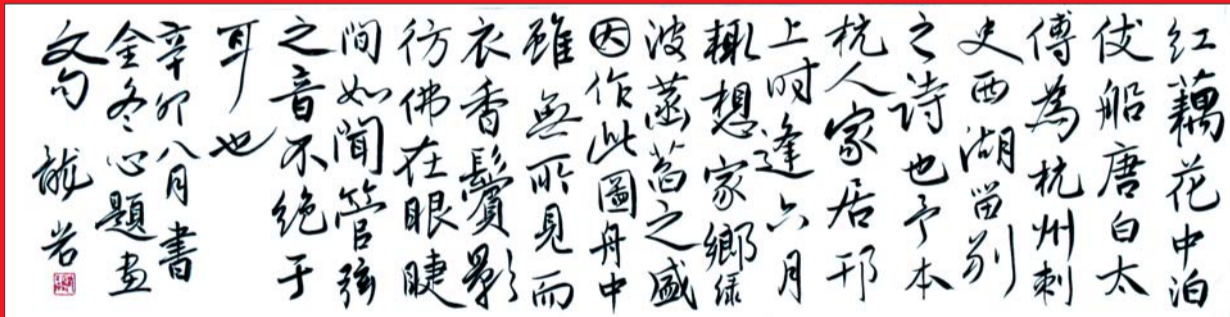 红藕花中泊
伎船唐白太
傅為杭州刺
史西湖留别
之诗也予本
杭人家居邗
上时逢六月
輙想家鄉绿
波菡萏之盛
因作此圖舟中
雖無所見而
衣香鬢影
彷佛在眼睫
间如闻管弦
之音不绝于
耳也
辛卯八月書
金冬心題画
文句 龍岩